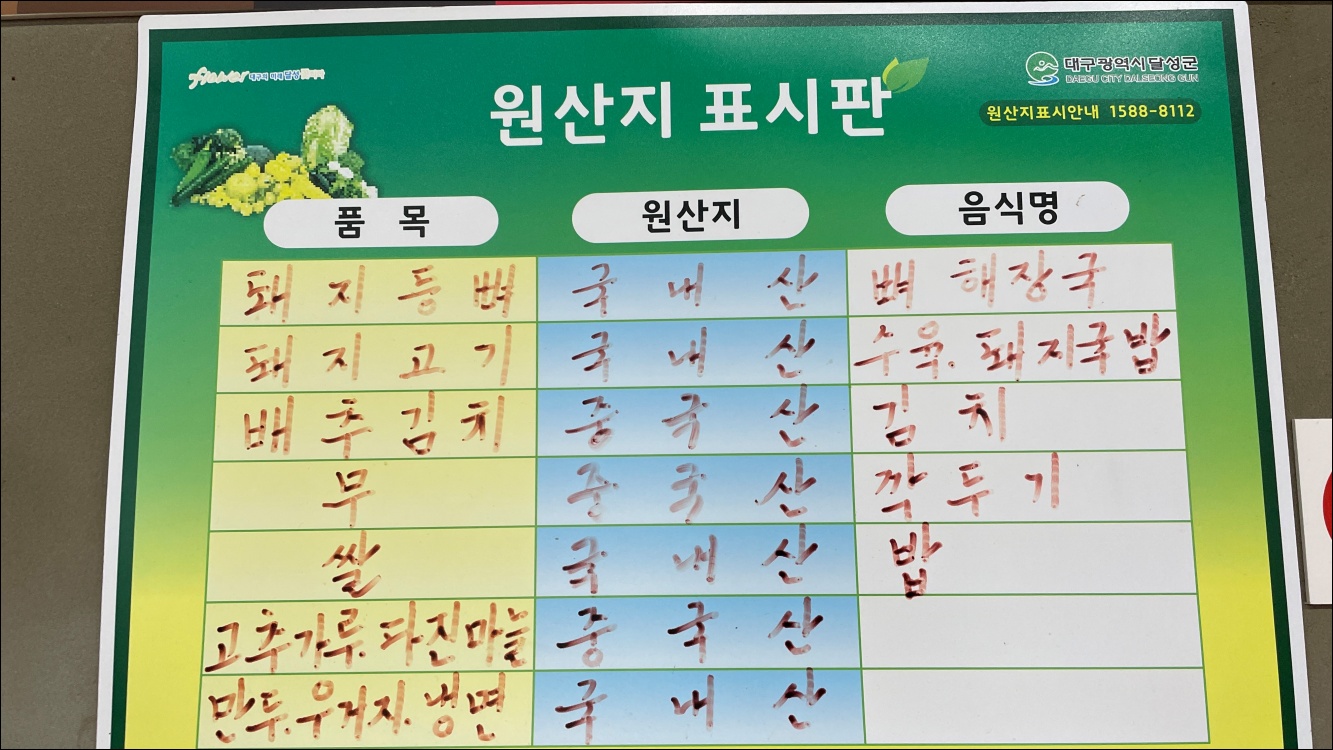 Flower 대구의 미래 달성 꽃피다
대구광역시달성군
DAEGU CITY DALSEONG GUN
원산지 표시판
원산지표시안내 1588-8112
품 목 원산지 음식명
돼지등뼈 국내산 뼈해장국
돼지고기 국내산 수육. 돼지국밥
배추김치 중국산 김치
무 중국산 깍두기
쌀 국내산 밥
고추가루. 다진마늘 중국산
만두. 우거지. 냉면 국내산